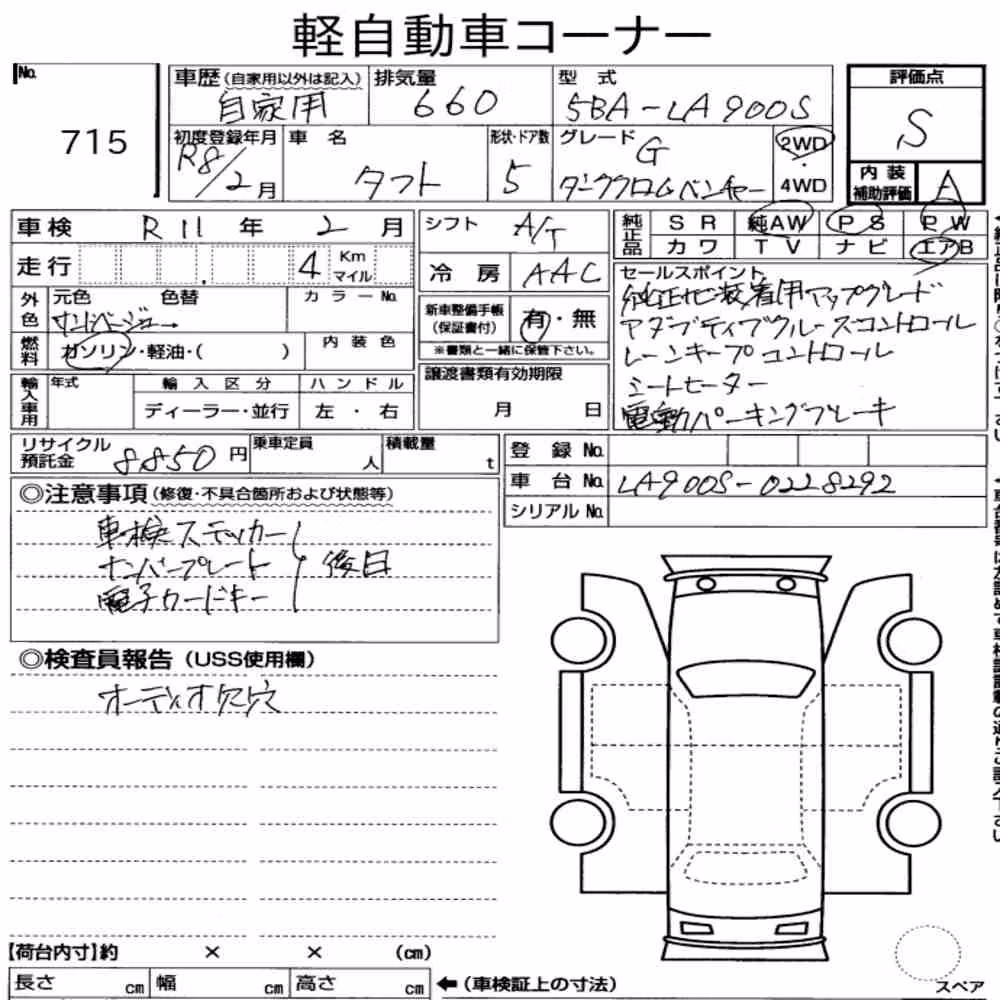 軽自動車コーナー
No.
715
車歴(自家用以外は記入)
自家用
排気量
660
型 式
5BA-LA900S
評価点
S
初度登録年月
R8/2月
車 名
タフト
形状・ドア数
5
グレード
G
ダーククロムベンチャー
2WD
・
4WD
内 装
補助評価
A
車検 R11 年 2 月
シフト A/T
純正品
SR 純AW PS PW
カワ TV ナビ エアB
走行 4 Km
マイル
冷 房 AAC
外色
元色 色替
カラーNo.
サンドベージュ→
新車整備手帳
(保証書付)
有・無
※書類と一緒に保管下さい。
セールスポイント
純正ナビ装着用アップグレード
アダプティブクルーズコントロール
レーンキープコントロール
シートヒーター
電動パーキングブレーキ
燃料
ガソリン・軽油・( )
内装色
輸入車用
年式
輸入区分
ディーラー・並行
ハンドル
左 ・ 右
譲渡書類有効期限
月 日
リサイクル
預託金
8850円
乗車定員
人
積載量
t
登 録 No.
車 台 No. LA900S-0228292
シリアル No.
◎注意事項(修復・不具合箇所および状態等)
車検ステッカー
ナンバープレート
電子カードキー
後日
◎検査員報告(USS使用欄)
オーディオ欠穴
【荷台内寸】約 × × (cm)
長さ cm 幅 cm 高さ cm
←(車検証上の寸法)
スペア